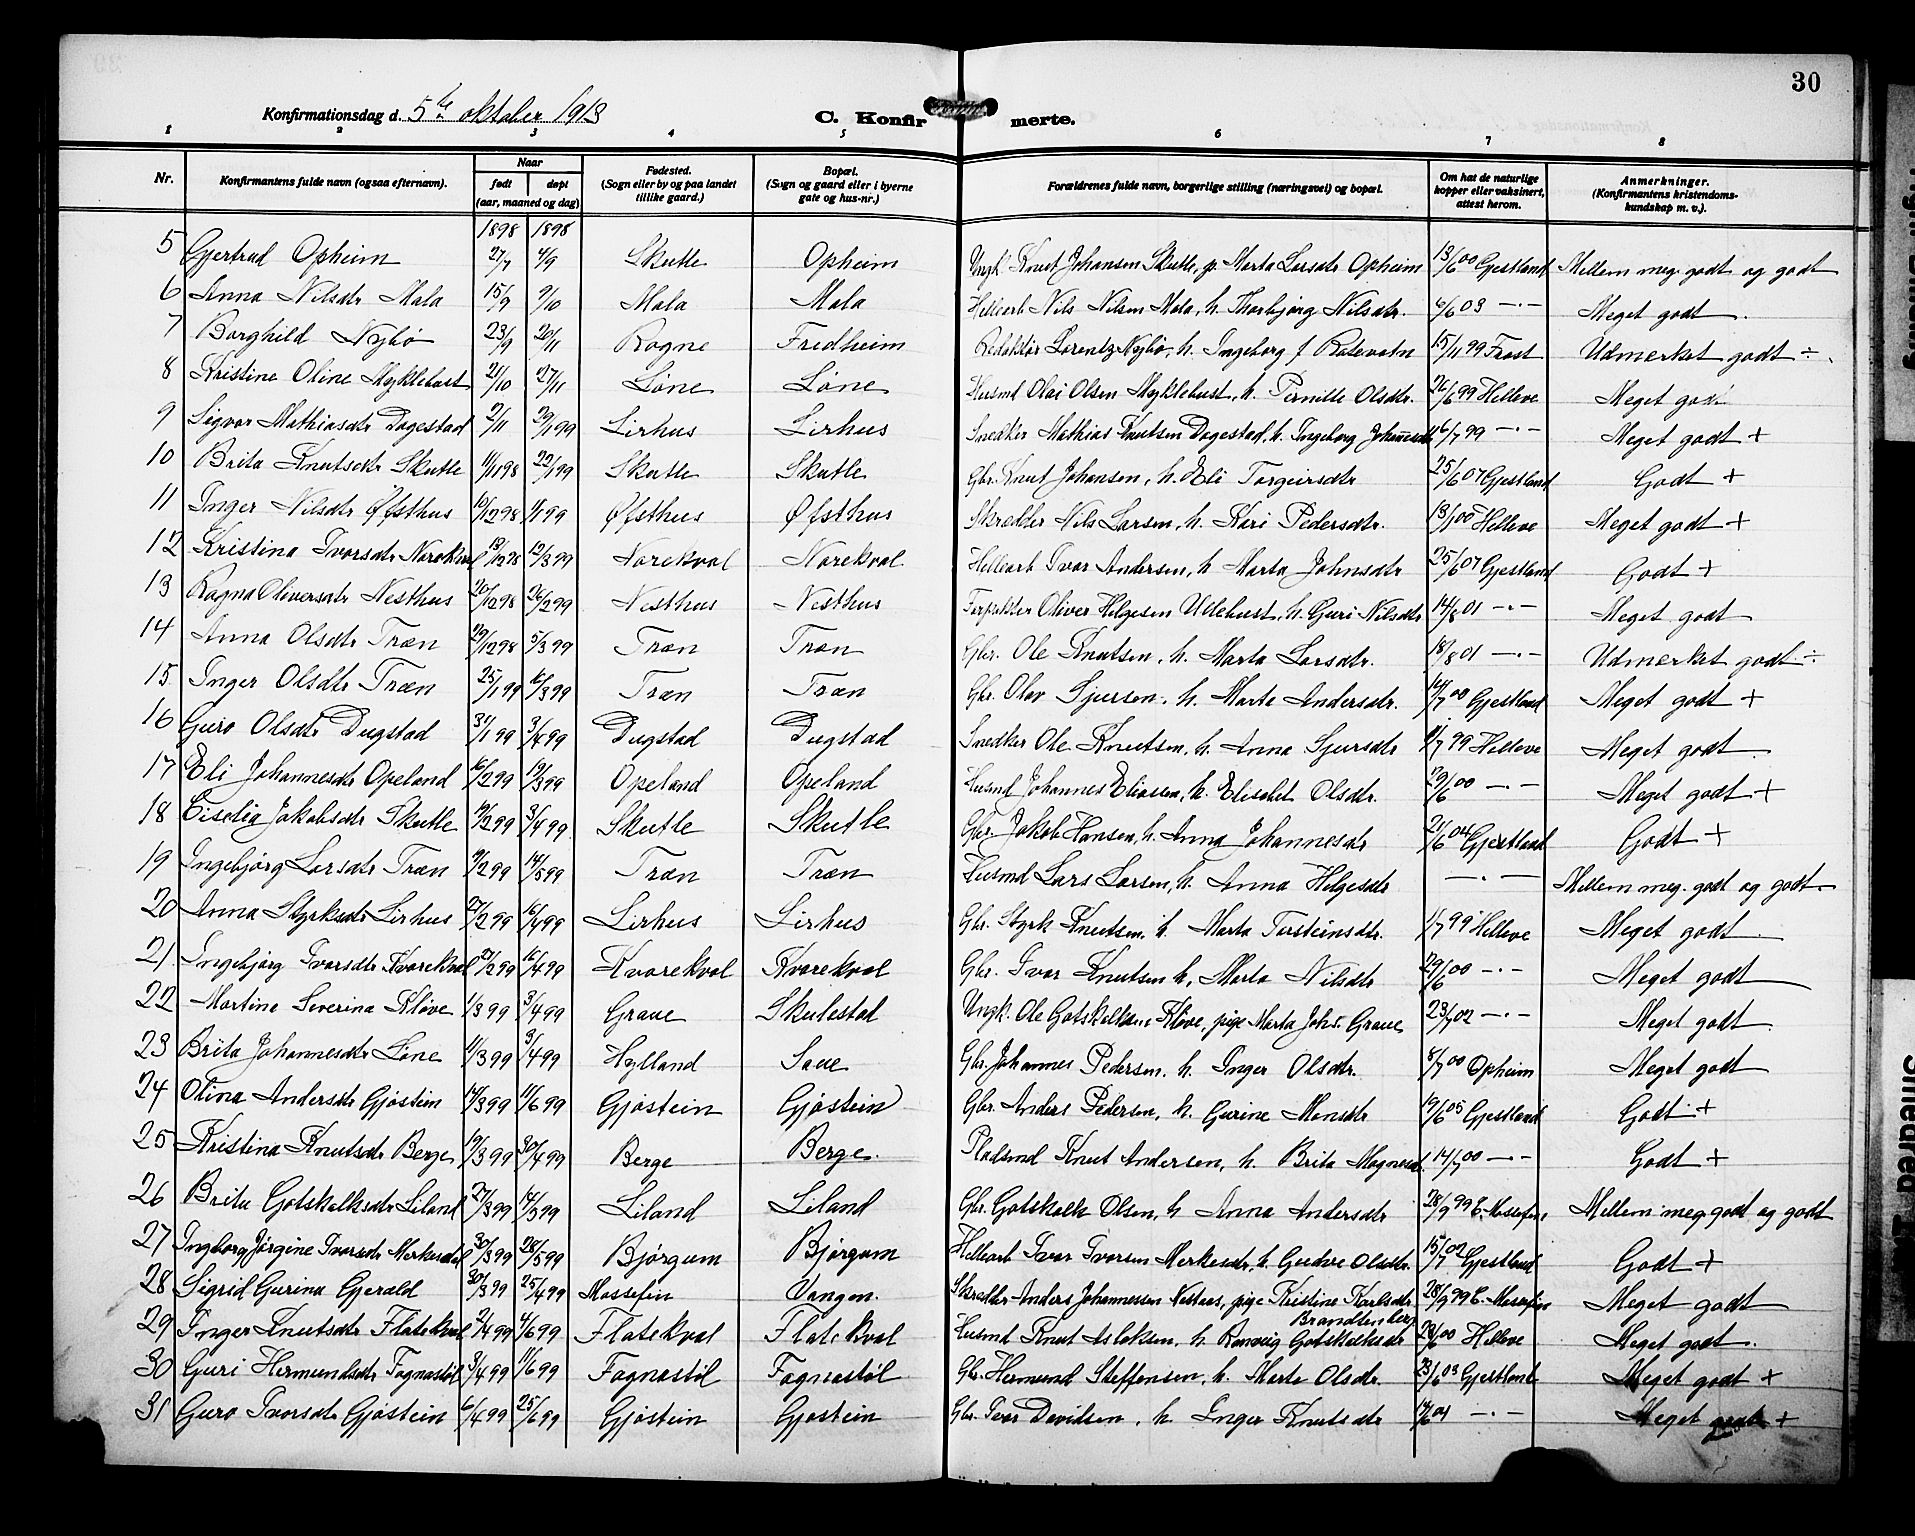 30
Konfirmationsdag d. 5te oktober 1913
C. Konfirmerte.
1 2 3 4 5 6 7 8
Nr. Konfirmantens fulde navn (ogsaa efternavn). Naar født døpt (aar, maaned og dag) Fødested. (Sogn eller by og paa landet tillike gaard.) Bopæl. (Sogn og gaard eller i byerne gate og hus-nr.) Forældrenes fulde navn, borgerlige stilling (næringsvei) og bopæl. Om hat de naturlige kopper eller vaksinert, attest herom. Anmerkninger. (Konfirmantens kristendomskundskap m. v.).
1898 1898
5 Gjertrud Opheim 27/7 4/9 Skutle Opheim Ungk. Knut Johansen Skutle, p. Marta Larsdtr Opheim 13/6 00 Gjestland Mellem meg. godt og godt
6 Anna Nilsdtr Mala 15/9 9/10 Mala Mala Hellearb Nils Nilsen Mala, h. Thorbjørg Nilsdtr. 6/6 03 —·— Meget godt.
7 Borghild Nybø 23/9 20/11 Rogne Fredheim Redaktør Lorentz Nybø, h. Ingeborg f Ratevatn 15/11 99 Frost Udmerket godt ÷
8 Kristine Oline Myklebust 21/10 27/11 Løne Løne Husmd Olai Olsen Myklebust, h. Pernille Olsdtr. 26/6 99 Helleve Meget godt
9 Sigvor Mathiasdtr Dagestad 2/11 29/1 99 Lirhus Lirhus Snedker Mathias Knutsen Dagestad, h. Ingeborg Johannesdtr 16/7 99 —·— Meget godt +
10 Brita Knutsdtr Skutle 11/11 98 22/1 99 Skutle Skutle Gbr. Knut Johansen, h. Eli Torgeirsdtr 25/6 07 Gjestland Godt +
11 Inger Nilsdtr Øfsthus 10/12 98 1/1 99 Øfsthus Øfsthus Skrædder Nils Larsen, h. Kari Pedersdtr. 13/1 00 Helleve Meget godt +
12 Kristina Ivarsdtr Norekval 13/12 98 12/3 99 Norekval Norekval Hellearb Ivar Andersen, h Marta Johnsdtr 25/6 07 Gjestland Godt +
13 Ragna Oliversdtr Nesthus 20/12 98 26/2 99 Nesthus Nesthus Oliver Helgesen Ullebust, h. Guri Nilsdtr 14/8 01 —·— Meget godt
14 Anna Olsdtr Træn 29/12 98 5/3 99 Træn Træn Gbr. Ole Knutsen, h. Marta Larsdtr. 18/8 01 —·— Udmerket godt ÷
15 Inger Olsdtr Træn 25/1 99 16/3 99 Træn Træn Gbr. Olav Sjursen, h. Marta Andersdtr. 14/7 00 Gjestland Meget godt +
16 Guro Olsdtr Dugstad 31/1 99 3/4 99 Dugstad Dugstad Snedker Ole Knutsen, h. Anna Sjursdtr 11/7 99 Helleve Meget godt.
17 Eli Johannesdtr Opeland 16/2 99 19/3 99 Opeland Opeland Husmd Johannes Eliassen, h. Elisabet Olsdtr. 29/6 00 —·— Meget godt +
18 Ciselia Jakobsdtr Skutle 19/2 99 3/4 99 Skutle Skutle Gbr. Jakob Hansen, h. Anna Johannesdtr 21/6 04 Gjestland Godt +
19 Ingebjørg Larsdtr Træn 9/2 99 14/5 99 Træn Træn Husmd Lars Larsen, h. Anna Helgesdtr —·— Mellem meg. godt og godt
20 Anna Styrksdtr Lirhus 27/2 99 16/4 99 Lirhus Lirhus Gbr. Styrk Knutsen, h. Marta Torsteinsdtr. 1/7 99 Helleve Meget godt.
21 Ingebjørg Ivarsdtr Kvarekval 27/2 99 16/4 99 Kvarekval Kvarekval Gbr. Ivar Knutsen h. Marta Nilsdtr 29/6 00 —·— Meget godt
22 Martina Severina Kløve 1/3 99 3/4 99 Graue Skulestad Ungk. Ole Gotskalksen Kløve, pige Marta Johs. Graue 23/7 02 —·— Meget godt.
23 Brita Johannesdtr Løne 11/3 99 3/4 99 Hylland Saue Gbr. Johannes Pedersen, h. Inger Olsdtr. 8/7 00 Opheim Meget godt
24 Olina Andersdtr Gjøstein 14/3 99 11/6 99 Gjøstein Gjøstein Gbr. Anders Pedersen, h. Gurine Monsdtr 19/6 05 Gjestland Godt +
25 Kristina Knutsdtr Berge 19/3 99 30/4 99 Berge Berge. Pladsmd Knut Andersen, h. Brita Magnesdt. 14/7 00 —·— Godt +
26 Brita Gotskalksdtr Liland 27/3 99 14/5 99 Liland Liland Gbr. Gotskalk Olsen, h Anna Andersdtr 28/9 99 E. Mossefin Mellem meg godt og godt
27 Ingborg Jørgine Ivarsdtr Merkesdal 30/3 99 28/5 99 Bjørgum Bjørgum Hellearb Ivar Ivarsen Merkesdtr, h. Gudve Olsdtr. 15/7 02 Gjestland Godt +
28 Sigrid Gurina Gjerald 30/3 99 25/4 99 Mossefin Vangen. Skrædder Anders Johannessen Nestaas, pige Kristine Karlsdtr Brandsenberg 28/9 99 E. Mossefin Meget godt
29 Inger Knutsdtr Flatekval 2/4 99 4/6 99 Flatekval Flatekval Husmd Knut Aslaksen, h Ranveig Gotskalksdtr 28/6 00 Helleve Meget godt.
30 Guri Hermundsdtr Fagnastøl 3/4 99 11/6 99 Fagnastøl Fagnastøl Gbr. Hermund Steffensen, h. Marta Olsdtr. 23/6 03 Gjestland Meget godt +
31 Guro Ivarsdtr Gjøstein 6/4 99 25/6 99 Gjøstein Gjøstein Gbr. Ivar Davidsen, h Inger Knutsdtr 14/6 04 —·— Meget godt +